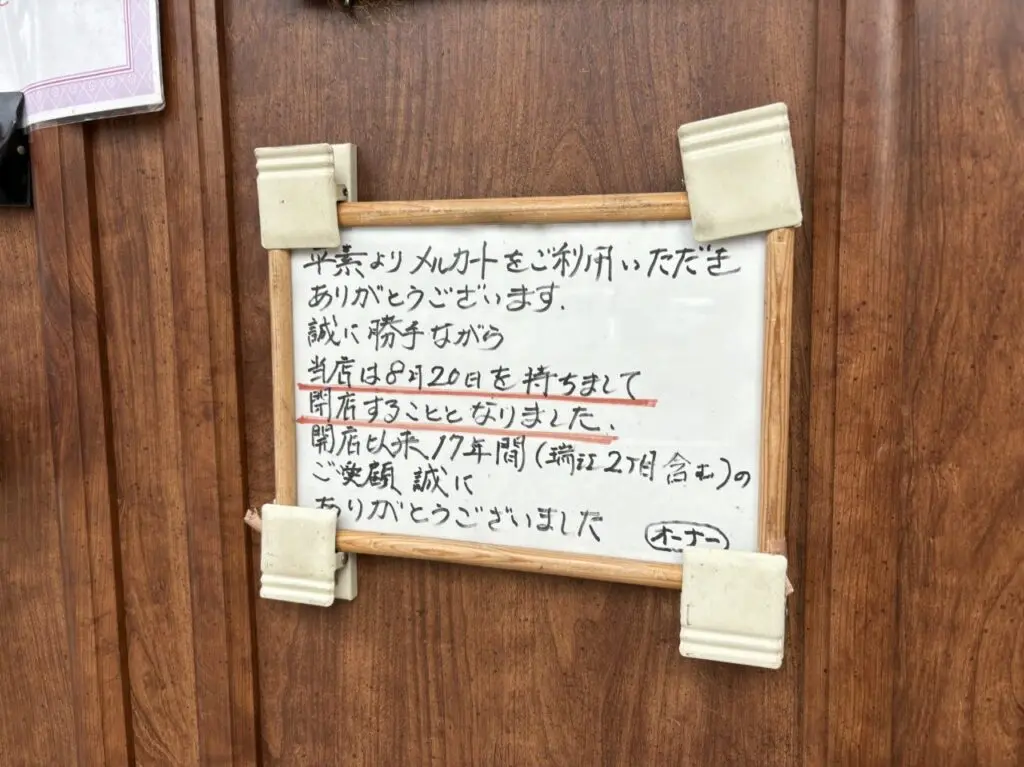 平素よりメルカートをご利用いただき
ありがとうございます.
誠に勝手ながら
当店は8月20日を持ちまして
閉店することとなりました.
開店以来17年間(瑞江2丁目含む)の
ご愛顧 誠に
ありがとうございました
オーナー